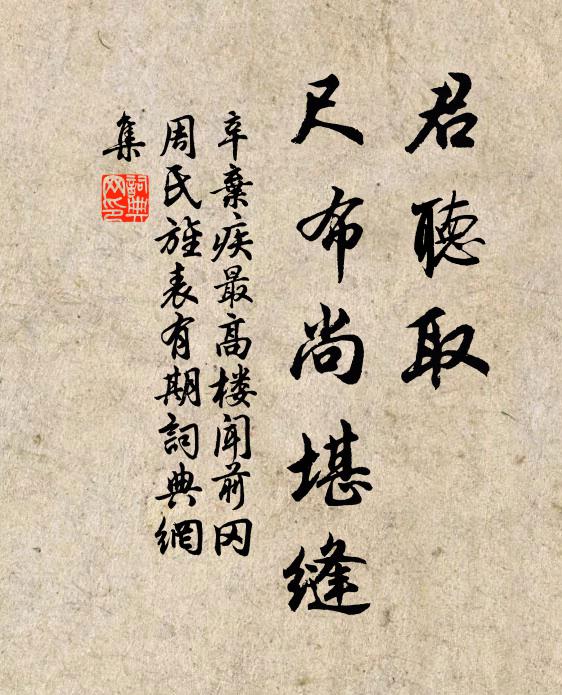 君聽取
尺布尚堪縫
辛棄疾最高楼聞前冈
周氏旌表有期詞典網
集
詞典
网印